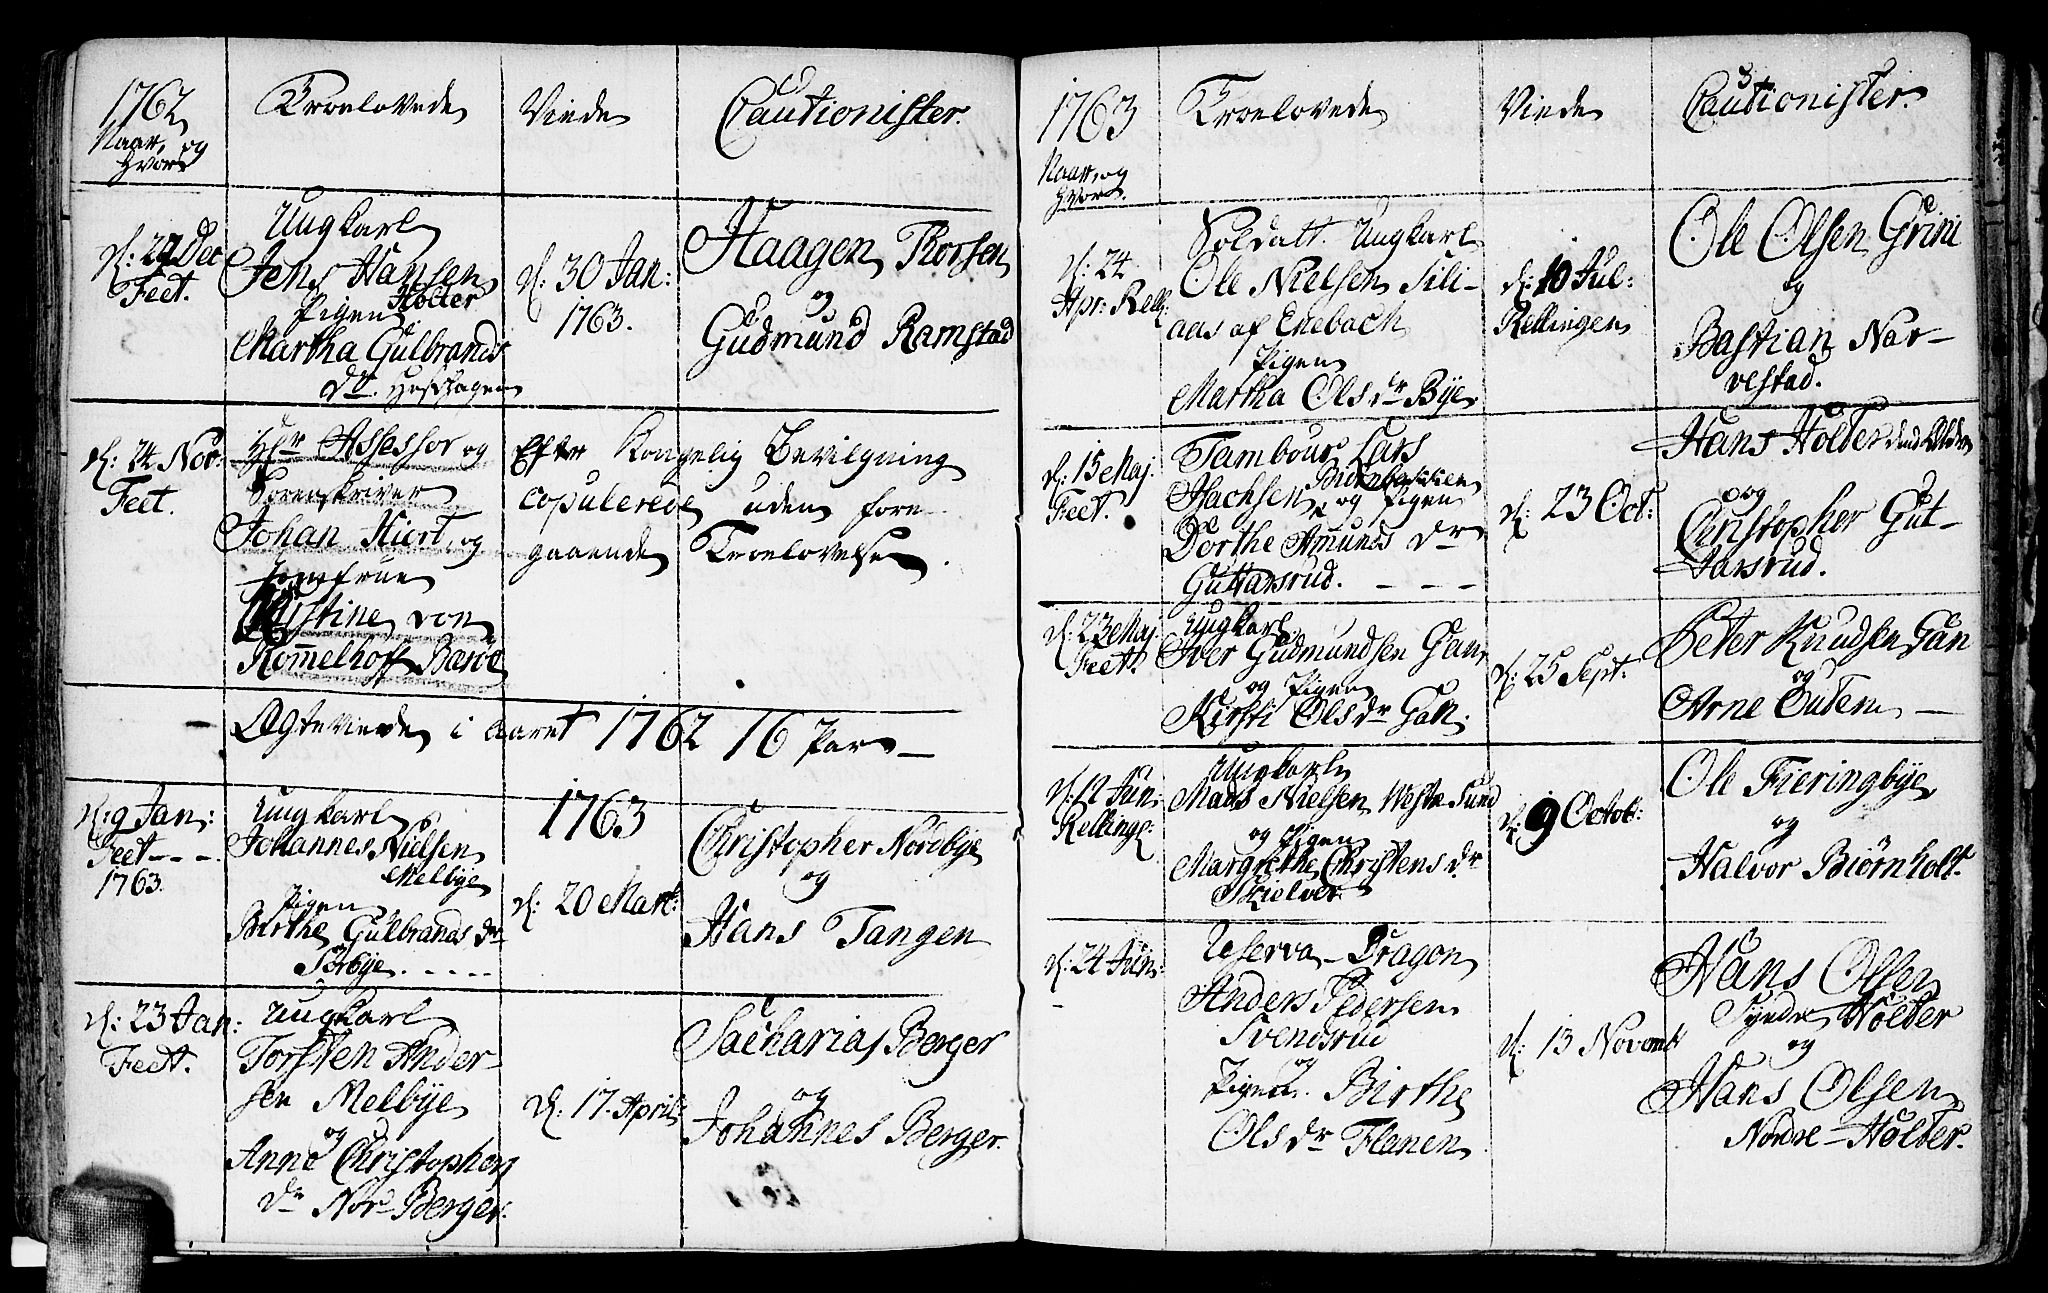 1762
Naar, og
hvor
Troelovede
Viede
Cautionister.
d: 27 Dec
Feet.
Ungkarl
Jens Hansen
Holter
Pigen
Martha Gulbrands
dr.
d: 30 Jan:
1763.
Haagen Thorsen
og
Gudmund Ramstad
d: 24 Nov:
Feet.
Hr Assessor og
Sorenskriver
Johan Hiort, og
Jomfrue
Kirstine von
Rommelhoff Bærøe
Efter Kongelig Bevilgning
copulerede uden fore-
gaaende Troelovelse.
Ægteviede i Aaret 1762 16 Par
d: 9 Jan:
Feet - - -
1763.
Ungkarl
Johannes Nielsen
Melbye
Pigen
Birthe Gulbrands dr
Sørbye. - - - -
1763
d: 20 Mart:
Christopher Nordbye
og
Hans Tangen
d: 23 Jan:
Feet.
Ungkarl
Torsten Ander-
sen Melbye
og
Anne Christophers
dr Nor Berger.
d: 17. April:
Sacharias Berger
og
Johannes Berger.
1763
Naar, og
hvor.
Troelovede
Viede
Cautionister.
d: 24
Apr: Rell:
Soldatt. Ungkarl
Ole Nielsen Lili-
aas af Enebach
Pigen
Martha Ols dr Bye.
d: 10 Jul:
Rellingen
Ole Olsen Grini
og
Bastian Nar-
vestad.
d: 15 Maj.
Feet.
Tambour Lars
Isachsen og Pigen
Dorthe Amunds dr
Guttarsrud. - - -
d: 23 Oct:
Hans Holter
og
Christopher Gut-
tarsrud.
d: 23 Maj.
Feet.
Ungkarl
Iver Gudmundsen Gan,
og Pigen
Kirsti Ols dr Gan.
d: 25 Sept:
Peter Knudsen Gan
og
Arne Outern
d: 12 Jun:
Rellinge:
Ungkarl
Mads Nielsen Westre Lund
og Pigen
Margrethe Christens dr
Skielver.
d: 9 Octob:
Ole Fieringbye
og
Halvor Biørnholt.
d: 24 Jun:
Reserva-Dragon
Anders Pedersen
Svendsrud
og
Pigen. Birthe
Ols dr Flanen.
d: 13 Novemb
Hans Olsen
Syndre Holter
og
Hans Olsen
Nordre-Holter.